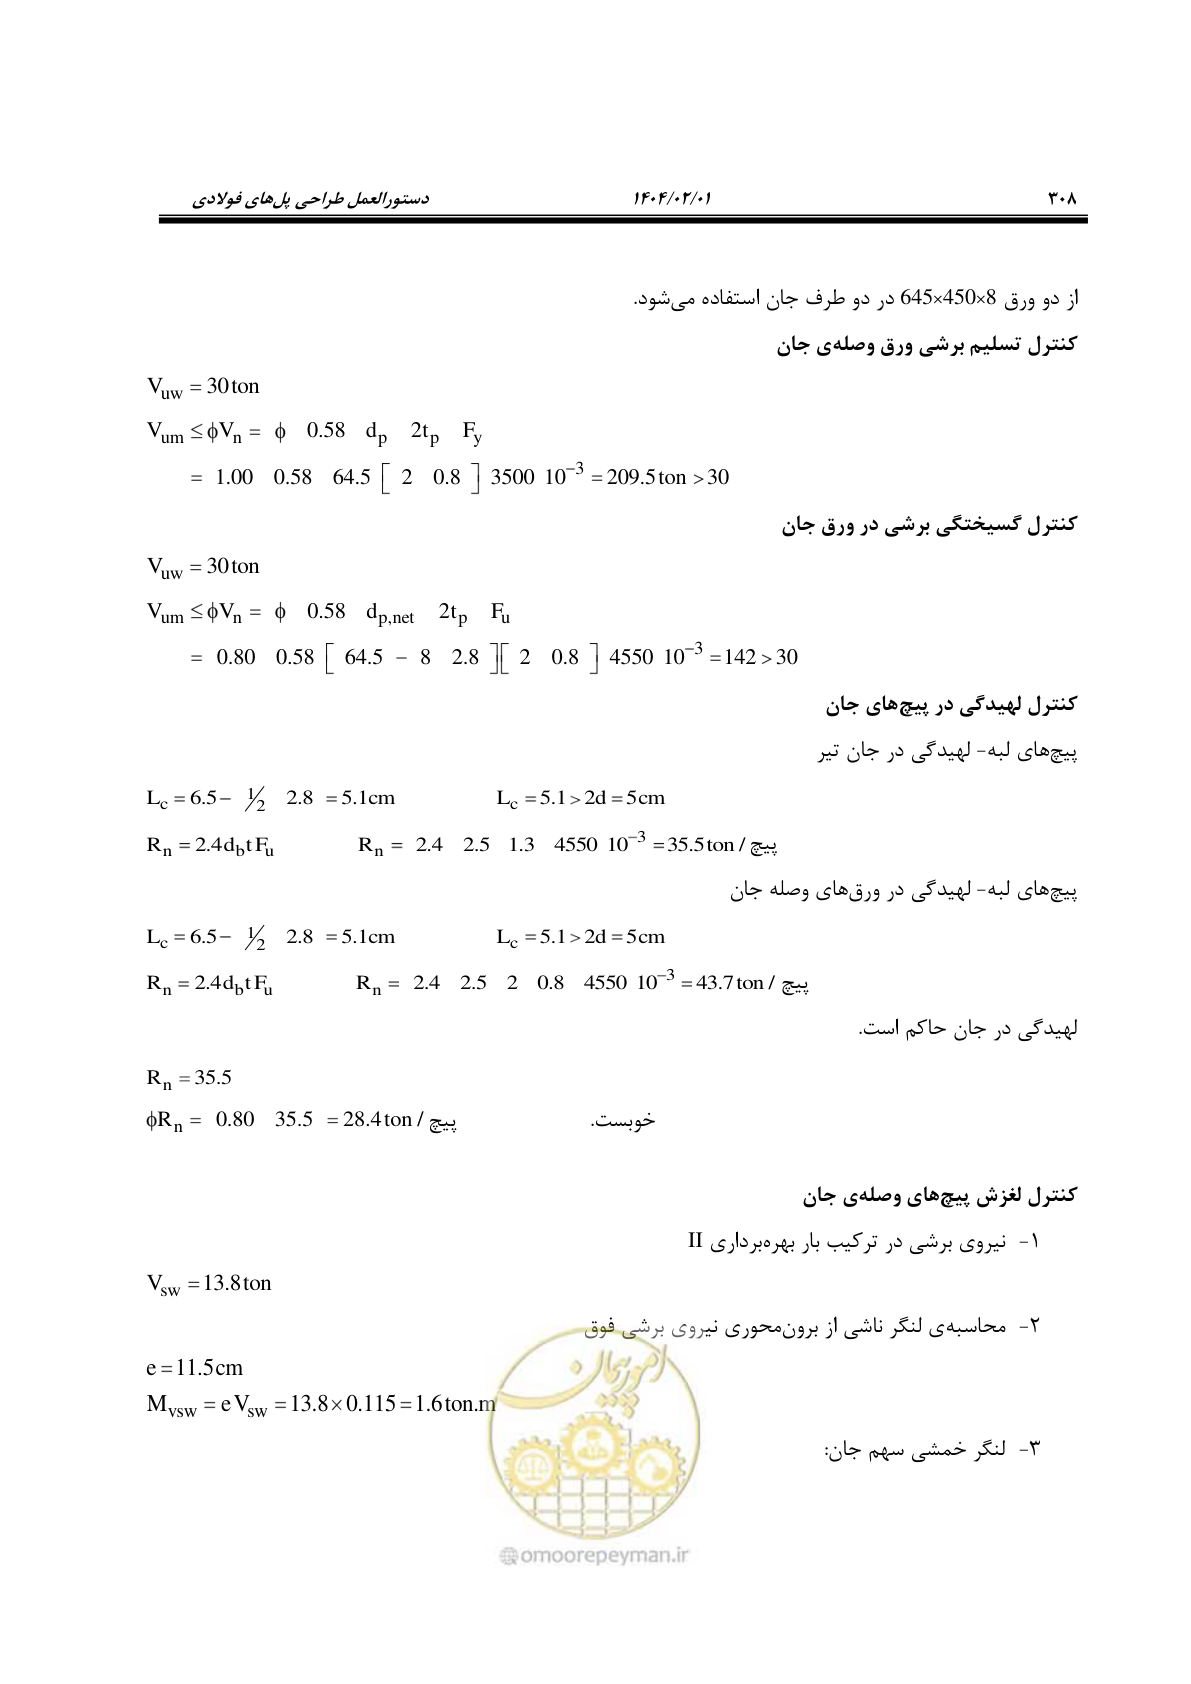 ۳۰۸ ۱۴۰۴/۰۲/۰۱ دستورالعمل طراحی پل‌های فولادی
از دو ورق 8×450×645 در دو طرف جان استفاده می‌شود.
کنترل تسلیم برشی ورق وصله‌ی جان
V_uw = 30 ton
V_um ≤ ϕV_n = ϕ 0.58 d_p 2t_p F_y
= 1.00 0.58 64.5 [ 2 0.8 ] 3500 10^−3 = 209.5 ton > 30
کنترل گسیختگی برشی در ورق جان
V_uw = 30 ton
V_um ≤ ϕV_n = ϕ 0.58 d_p,net 2t_p F_u
= 0.80 0.58 [ 64.5 − 8 2.8 ][ 2 0.8 ] 4550 10^−3 = 142 > 30
کنترل لهیدگی در پیچ‌های جان
پیچ‌های لبه- لهیدگی در جان تیر
L_c = 6.5 − 1/2 2.8 = 5.1cm L_c = 5.1 > 2d = 5cm
R_n = 2.4 d_b t F_u R_n = 2.4 2.5 1.3 4550 10^−3 = 35.5 ton / پیچ
پیچ‌های لبه- لهیدگی در ورق‌های وصله جان
L_c = 6.5 − 1/2 2.8 = 5.1cm L_c = 5.1 > 2d = 5cm
R_n = 2.4 d_b t F_u R_n = 2.4 2.5 2 0.8 4550 10^−3 = 43.7 ton / پیچ
لهیدگی در جان حاکم است.
R_n = 35.5
ϕR_n = 0.80 35.5 = 28.4 ton / پیچ خوبست.
کنترل لغزش پیچ‌های وصله‌ی جان
۱- نیروی برشی در ترکیب بار بهره‌برداری II
V_sw = 13.8 ton
۲- محاسبه‌ی لنگر ناشی از برون‌محوری نیروی برشی فوق
e = 11.5 cm
M_vsw = e V_sw = 13.8 × 0.115 = 1.6 ton.m
۳- لنگر خمشی سهم جان:
امور پیمان
@omoorepeyman.ir